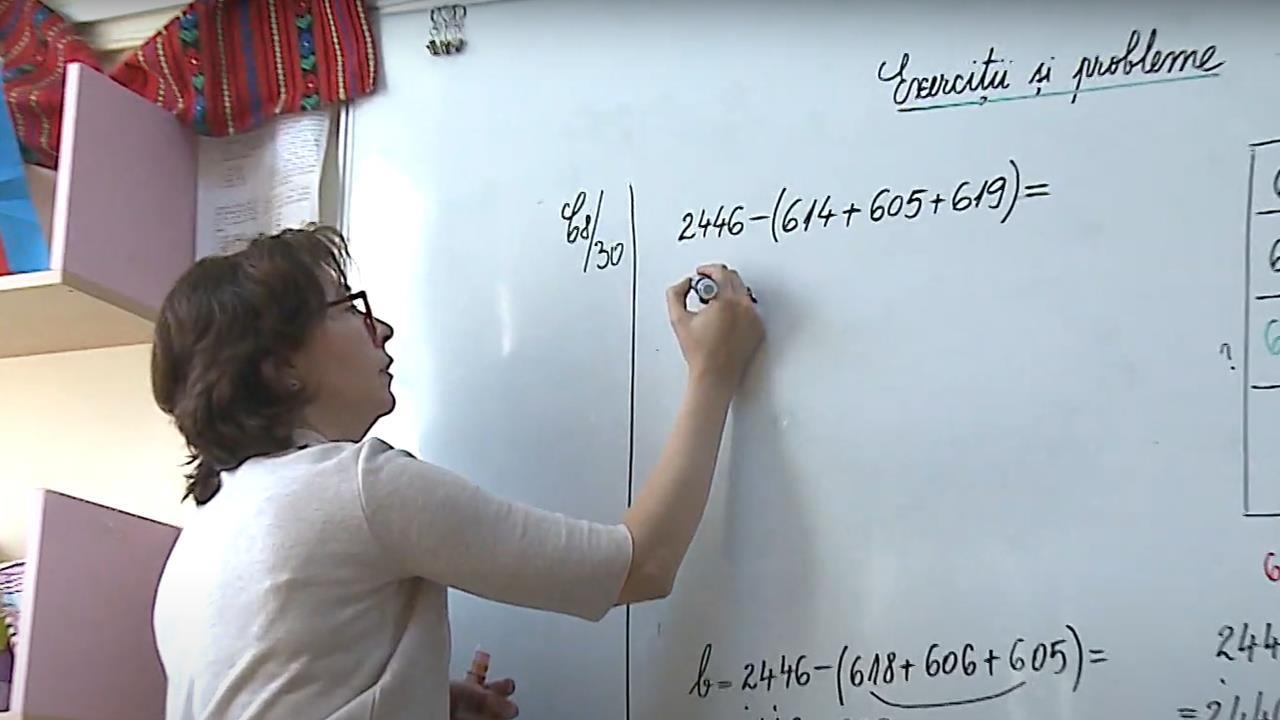 Exerciții și probleme
E8/30
2446-(614+605+619)=
?
b=2446-(618+606+605)=
244
=244